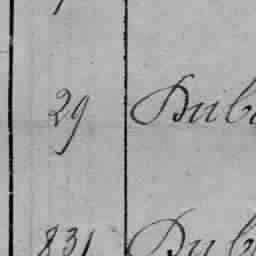 29 Dub
831 Dub